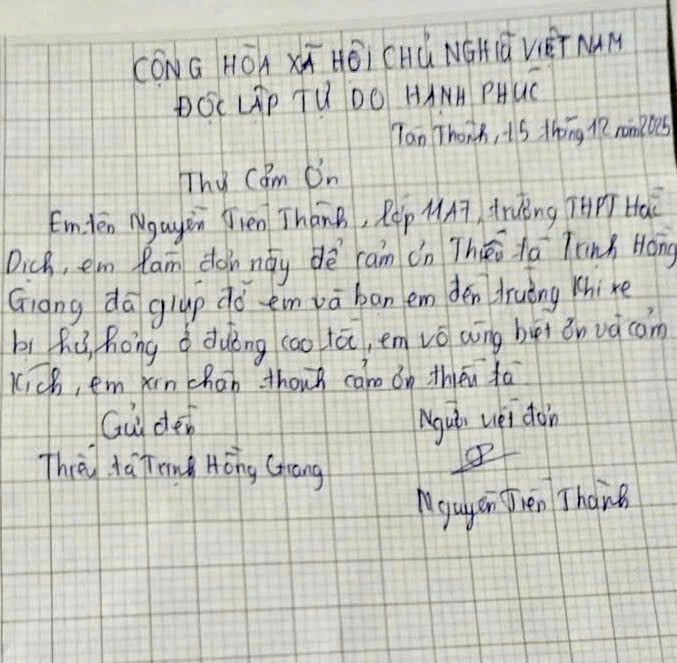 CỘNG HÒA XÃ HỘI CHỦ NGHĨA VIỆT NAM
ĐỘC LẬP TỰ DO HẠNH PHÚC
Tân Thành, 15 tháng 12 năm 2025
Thư Cảm Ơn
Em tên Nguyễn Tiến Thành, lớp 11A7, trường THPT Hắc
Dịch, em làm đơn này để cảm ơn Thiếu tá Trịnh Hồng
Giang đã giúp đỡ em và bạn em đến trường khi xe
bị hư, hỏng ở đường cao tốc, em vô cùng biết ơn và cảm
kích, em xin chân thành cảm ơn thiếu tá
Gửi đến
Người viết đơn
Thiếu tá Trịnh Hồng Giang
Nguyễn Tiến Thành